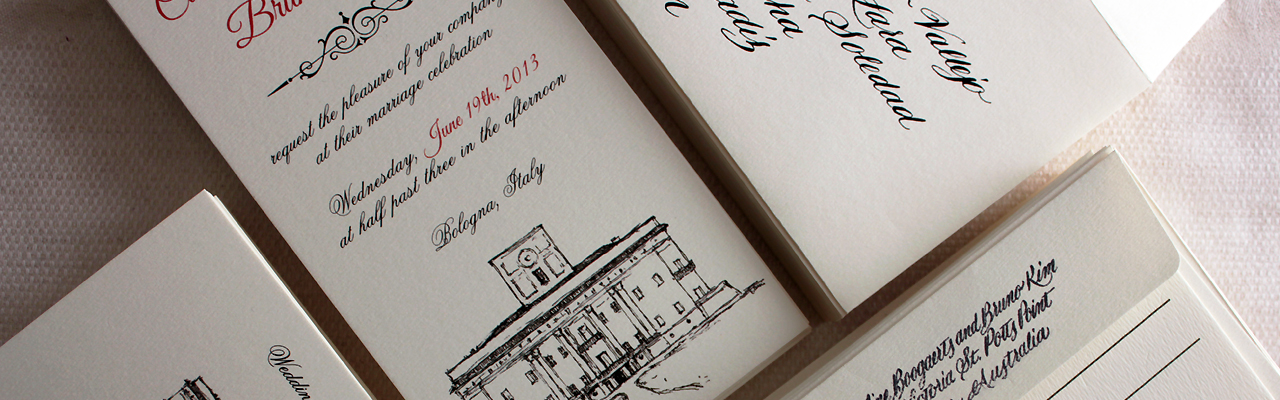 request the pleasure of your company
at their marriage celebration
Wednesday, June 19th, 2013
at half past three in the afternoon
Bologna, Italy
Vallejo
Lara
Soledad
Boogaerts and Bruno Kim
St. Potts Point
Australia